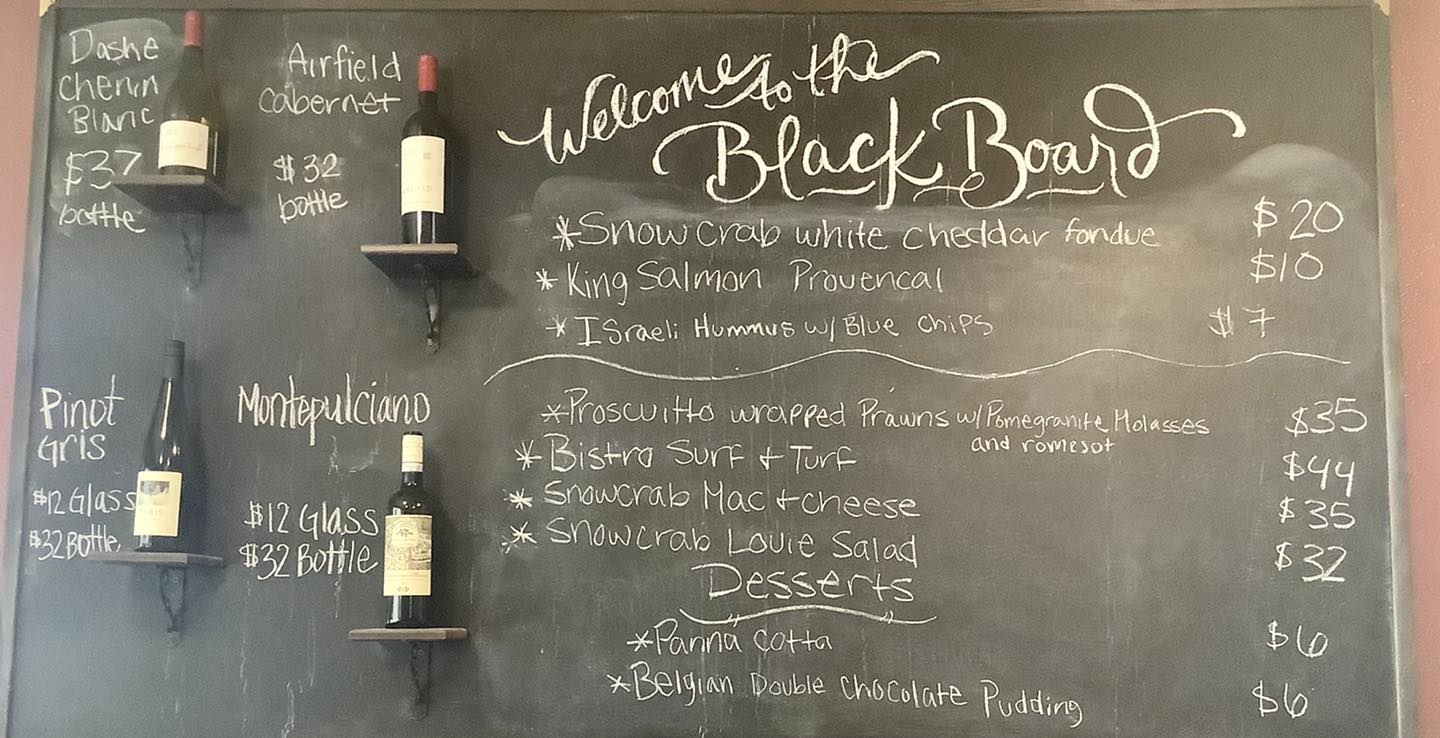 Dashe
Chenin
Blanc
$37
bottle
Airfield
Cabernet
$32
bottle
Pinot
Gris
$12 Glass
$32 Bottle
Montepulciano
$12 Glass
$32 Bottle
Welcome to the
Black Board
*Snowcrab white cheddar fondue $20
*King Salmon Provencal $10
*Israeli Hummus w/ Blue Chips $7
*Proscuitto wrapped Prawns w/Pomegranite Molasses $35
and romesot
*Bistro Surf + Turf $44
*Snowcrab Mac + cheese $35
*Snowcrab Louie Salad $32
Desserts
*Panna Cotta $6
*Belgian Double Chocolate Pudding $6